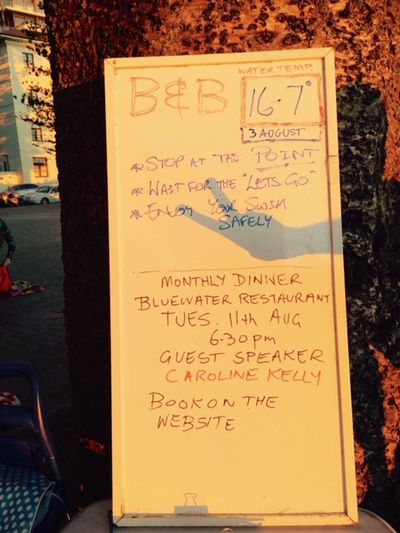 B&B
WATER TEMP.
16.7°
3 AUGUST
* STOP AT THE POINT
* WAIT FOR THE "LETS GO"
* ENJOY YOUR SWIM
SAFELY
MONTHLY DINNER
BLUEWATER RESTAURANT
TUES. 11th AUG
6-30pm
GUEST SPEAKER
CAROLINE KELLY
BOOK ON THE
WEBSITE